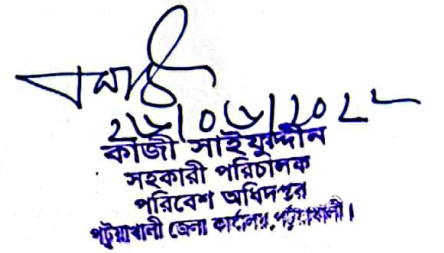 ২৬|০৬|২০২২
কাজী সাইফুদ্দীন
সহকারী পরিচালক
পরিবেশ অধিদপ্তর
পটুয়াখালী জেলা কার্যালয়, পটুয়াখালী।